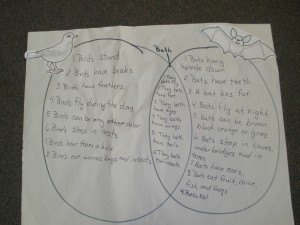 Both
1. Birds stand
2. Birds have beaks
3. Birds have feathers
4. Birds fly during the day
5. Birds can be any color
6. Birds sleep in nests
8. Birds eat worms bugs and insects
1. They both fly
2. They both have feet
3. They both have eyes
4. They both have wings
5. They both have tails
1. Bats hang upside down
2. Bats have teeth
3. A bat has fur
4. Bats fly at night
5. Bats can be brown
black orange or gray
6. Bats sleep in caves,
under bridges and in
trees.
7. Bats have ears
8. Bats eat fruit, mice,
fish and frogs